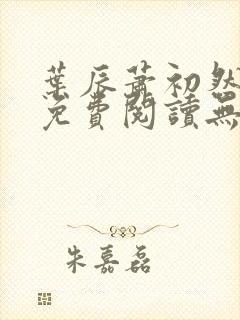 葉辰蕭初然
免費閱讀無
朱嘉磊